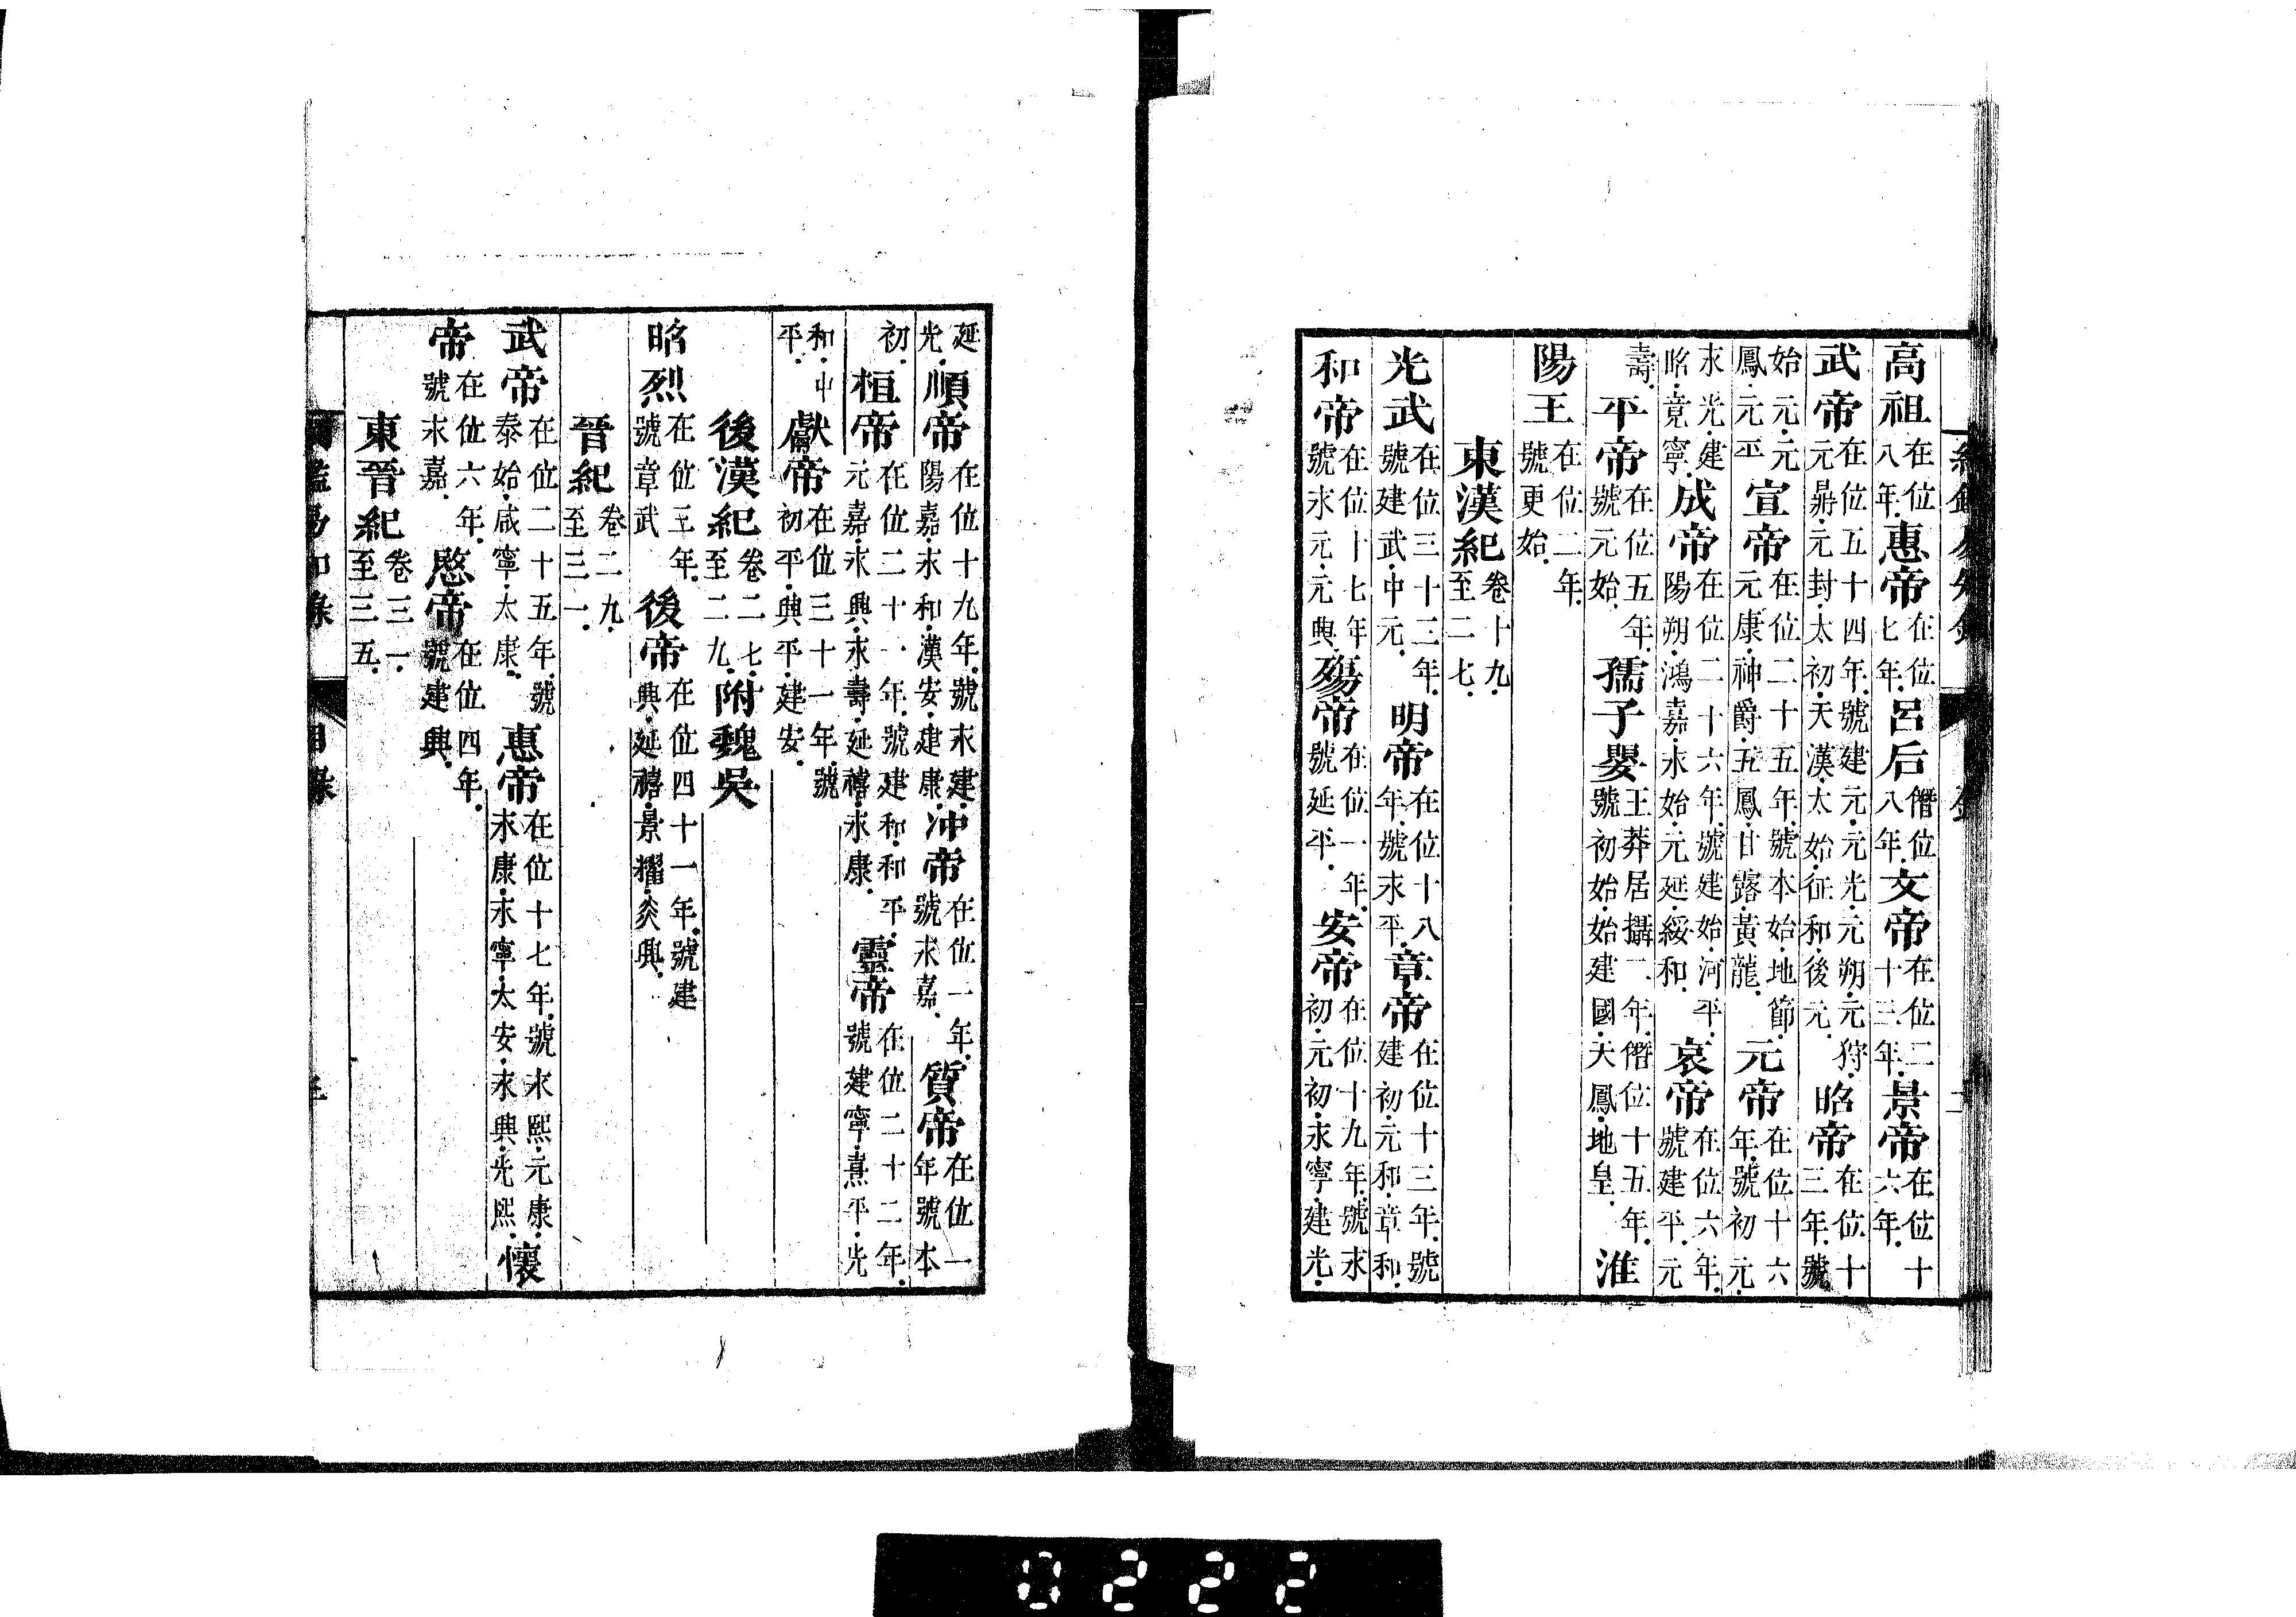 高祖在位八年.惠帝在位七年.呂后僭位八年.文帝在位二十三年.景帝在位十六年.
武帝在位五十四年.號建元.元光.元朔.元狩.元鼎.元封.太初.天漢.太始.征和.後元.昭帝在位十三年.號
始元.元鳳.元平宣帝在位二十五年.號本始.地節.元康.神爵.五鳳.甘露.黃龍.元帝在位十六年.號初元.
永光.建昭.竟寧.成帝在位二十六年.號建始.河平.陽朔.鴻嘉.永始.元延.綏和.哀帝在位六年.號建平.元
壽.平帝在位五年.號元始.孺子嬰王莽居攝二年.僭位十五年.號初始.始建國.天鳳.地皇.淮
陽王在位二年.號更始.
東漢紀卷十九.至二七.
光武在位三十三年.號建武.中元.明帝在位十八年.號永平.章帝在位十三年.號建初.元和.章和.
和帝在位十七年.號永元.元興.殤帝在位一年.號延平.安帝在位十九年.號永初.元初.永寧.建光.
延光.順帝在位十九年.號永建.陽嘉.永和.漢安.建康.冲帝在位一年.號永嘉.質帝在位一年號本
初.桓帝在位二十一年.號建和.和平.元嘉.永興.永壽.延禧.永康.靈帝在位二十二年.號建寧.熹平.光
和.中平.獻帝在位三十一年.號初平.興平.建安.
後漢紀卷二七.至二九.附魏吳
昭烈在位三年.號章武後帝在位四十一年.號建興.延禧.景耀.炎興.
晉紀卷二九.至三一.
武帝在位二十五年.號泰始.咸寧.太康.惠帝在位十七年.號永熙.元康.永康.永寧.太安.永興.光熙.懷
帝在位六年.號永嘉.愍帝在位四年.號建興.
東晉紀卷三一.至三五.
目錄
0222